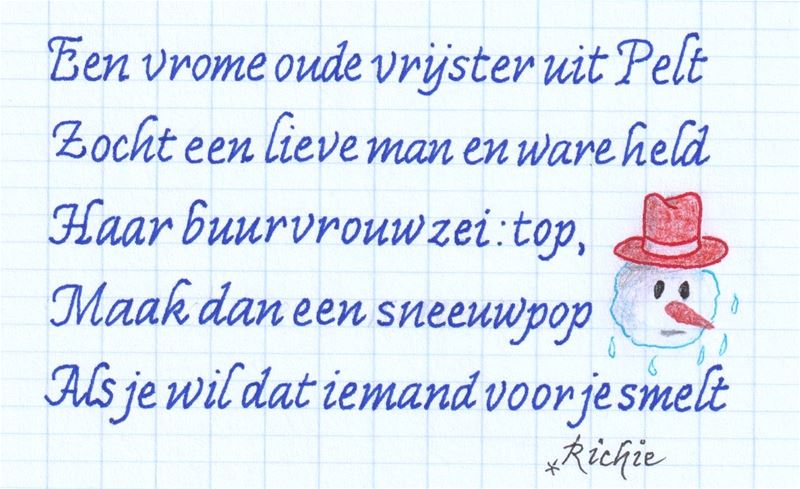 Een vrome oude vrijster uit Pelt
Zocht een lieve man en ware held
Haar buurvrouw zei: top,
Maak dan een sneeuwpop
Als je wil dat iemand voor je smelt
*Richie